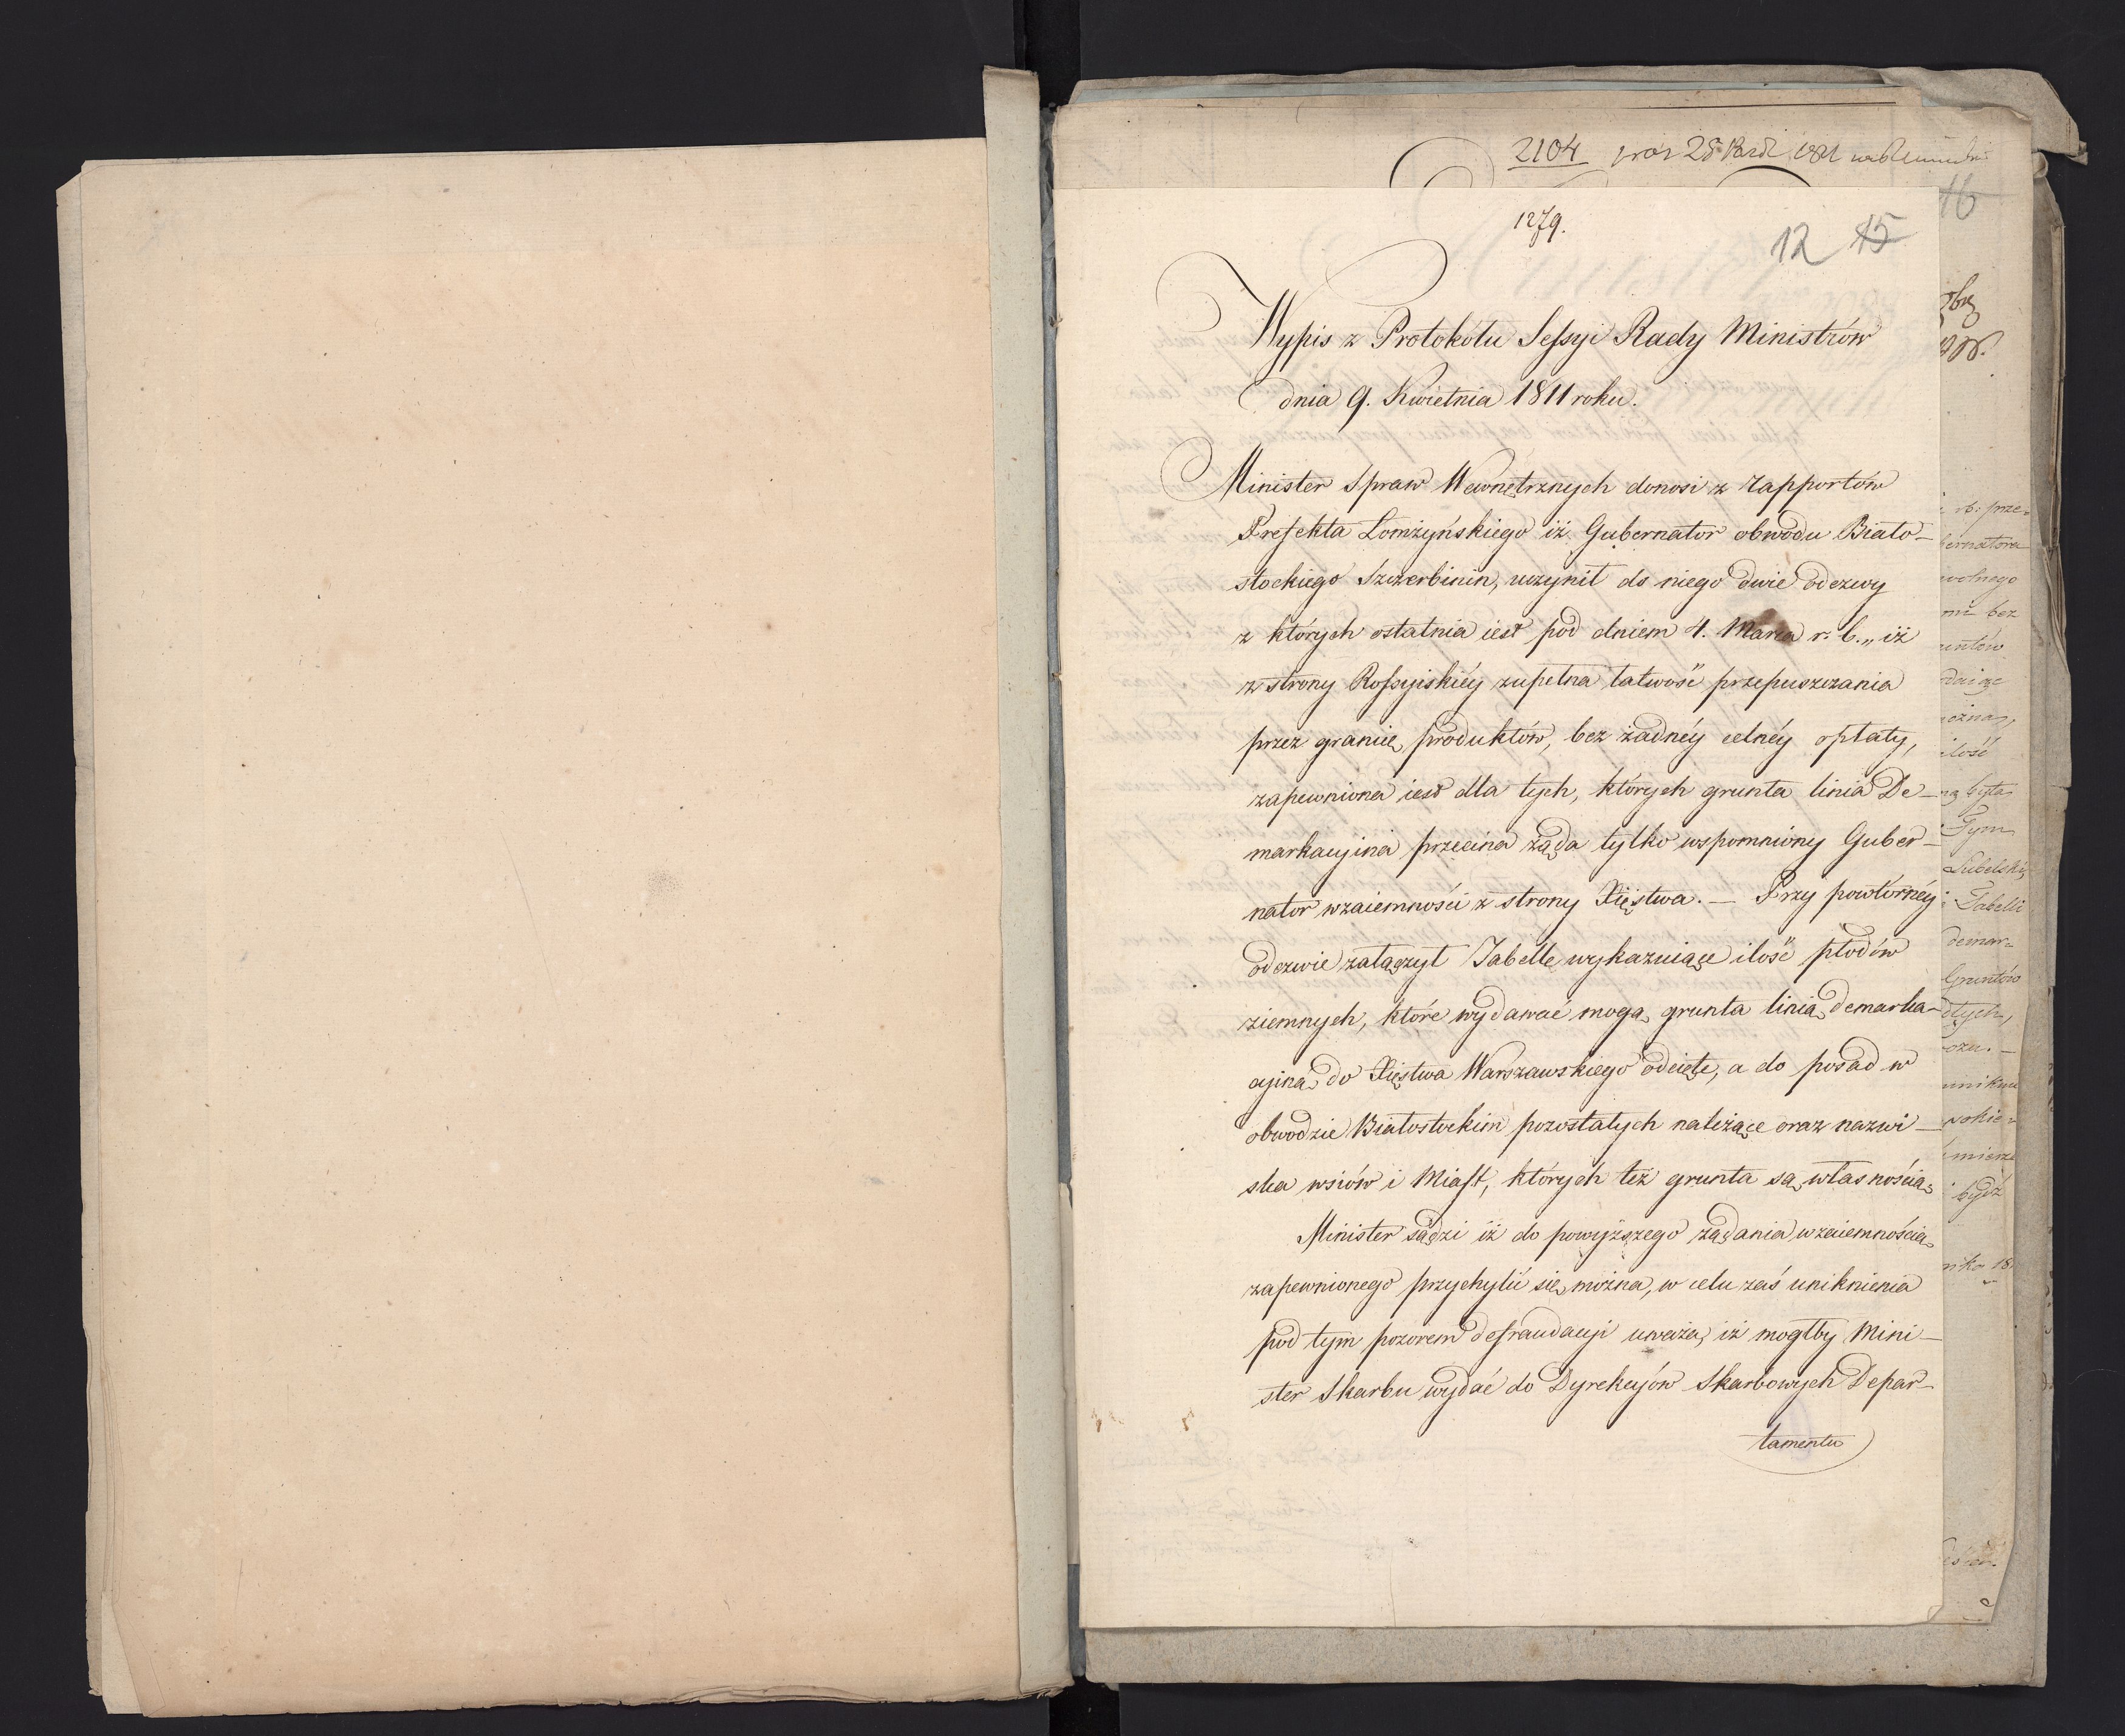 2104
1279.
12 15
16
Wypis z Protokółu Sessyi Rady Ministrów
dnia 9. Kwietnia 1811 roku.
Minister Spraw Wewnętrznych donosi z rapportów
Prefekta Łomżyńskiego iż Gubernator obwodu Biało-
stockiego Szczerbinin, uczynił do niego dwie odezwy
z których ostatnia iest pod dniem 4. Marca r. b. „ iż
z strony Rossyiskiéy zupełna łatwość przepuszczania
przez granicę produktów, bez żadnéy celnéy opłaty,
zapewniona iest dla tych, których grunta linia De-
markacyina przecina żąda tylko wspomniony Guber-
nator wzaiemności z strony Xięstwa. — Przy powtórnéy
odezwie załączył Tabellę wykazuiące ilość płodów
ziemnych, które wydawać mogą grunta linią demarka-
cyiną do Xięstwa Warszawskiego odcięte, a do posad w
obwodzie Białostockim pozostałych należące oraz nazwi-
ska wsiów i Miast, których też grunta są własnością.
Minister sądzi iż do powyższego żądania wzaiemnością
zapewnionego przychylić się można, w celu zaś uniknienia
pod tym pozorem defraudacyi uważa, iż mógłby Mini-
ster Skarbu wydać do Dyrekcyów Skarbowych Depar-
tamentu